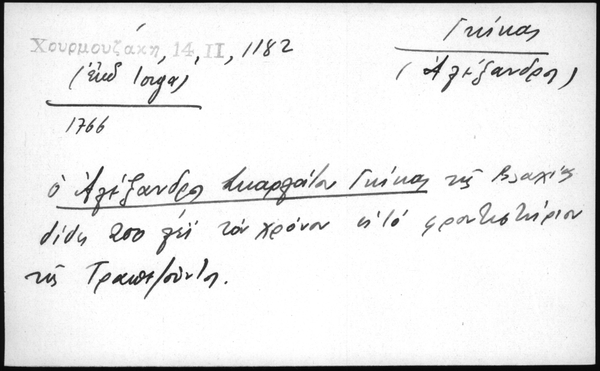 Χουρμουζάκη, 14, II, 1182
(ἐκδ Ιοργα)
1766
Γκίκας
(Ἀλέξανδρος)
ὁ Ἀλέξανδρος Σκαρλάτου Γκίκας τῆς Βλαχίας
δίδει 200 λέϊ τὸν χρόνον εἰς τό φροντιστήριον
τῆς Τραπεζοῦντος.